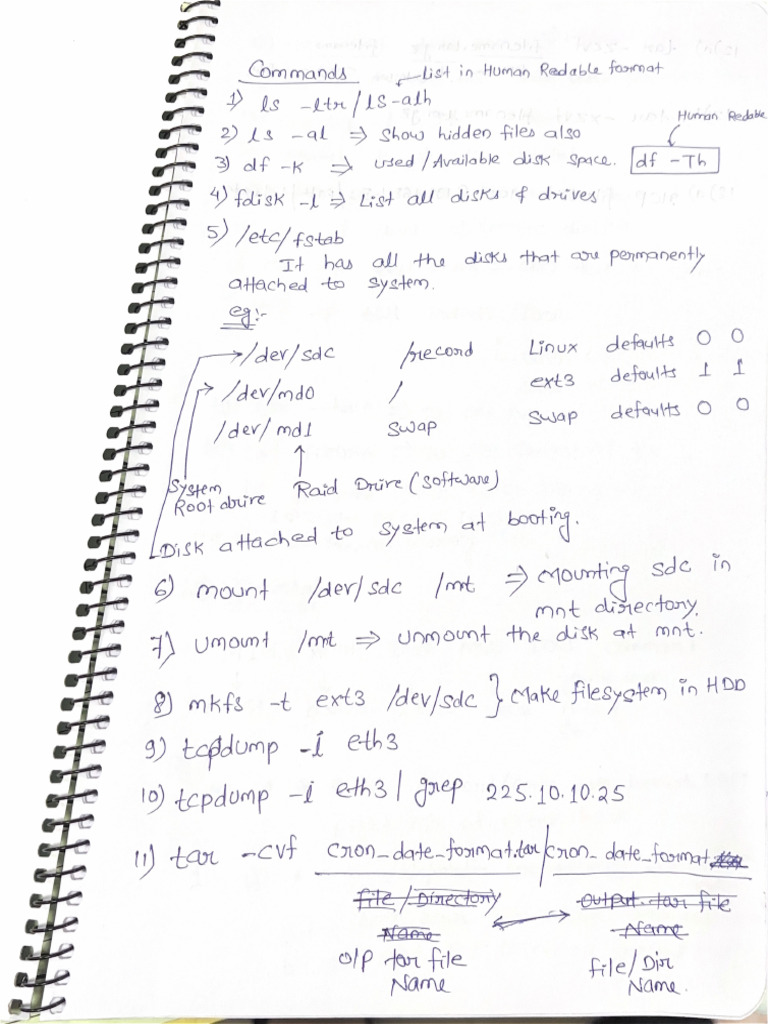 Commands
List in Human Redable format
1) ls -ltr / ls -alh
2) ls -al ⇒ Show hidden files also
Human Redable
3) df -k ⇒ used / Available disk space. df -Th
4) fdisk -l ⇒ List all disks & drives
5) /etc/fstab
It has all the disks that are permanently
attached to system.
eg:-
/dev/sdc /record Linux defaults 0 0
/dev/md0 / ext3 defaults 1 1
/dev/md1 swap swap defaults 0 0
System
Root drive
Raid Drive (software)
Disk attached to system at booting.
6) mount /dev/sdc /mt ⇒ Mounting sdc in
mnt directory.
7) umount /mt ⇒ unmount the disk at mnt.
8) mkfs -t ext3 /dev/sdc } Make filesystem in HDD
9) tcpdump -i eth3
10) tcpdump -i eth3 | grep 225.10.10.25
11) tar -cvf cron_date_format.tar / cron_date_format
file / Directory
Name
Output tar file
Name
O/P tar file
Name
file/Dir
Name.